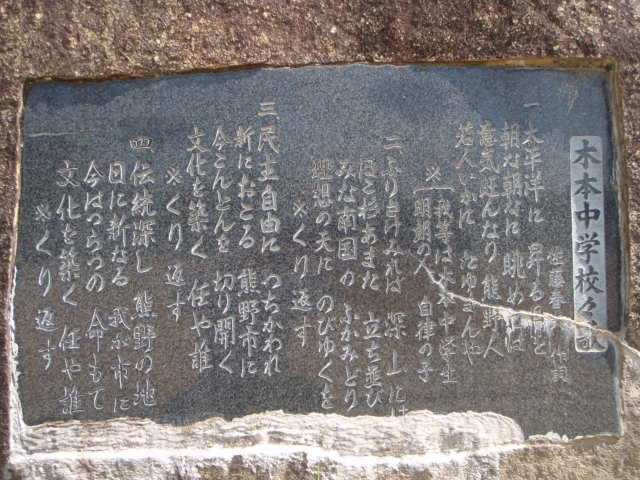 木本中学校々歌
佐藤春 作詞
一 太平洋に 昇る日を
朝な朝なに 眺めば
意気旺んなり 熊野人
若人いかに たゆまんや
※ 我等は木本中学生
明朗の人 自律の子
二 ふりさけみれば 深山には
ほこ杉あまた 立ち並び
みな南国の ふかみどり
理想の天に のびゆくを
※くり返す
三 民主自由に つちかわれ
新におこる 熊野市に
今こんとんを 切り開く
文化を築く 任や誰
※くり返す
四 伝統深し 熊野の地
日に新なる 我が市に
今はつらつの 命もて
文化を築く 任や誰
※くり返す